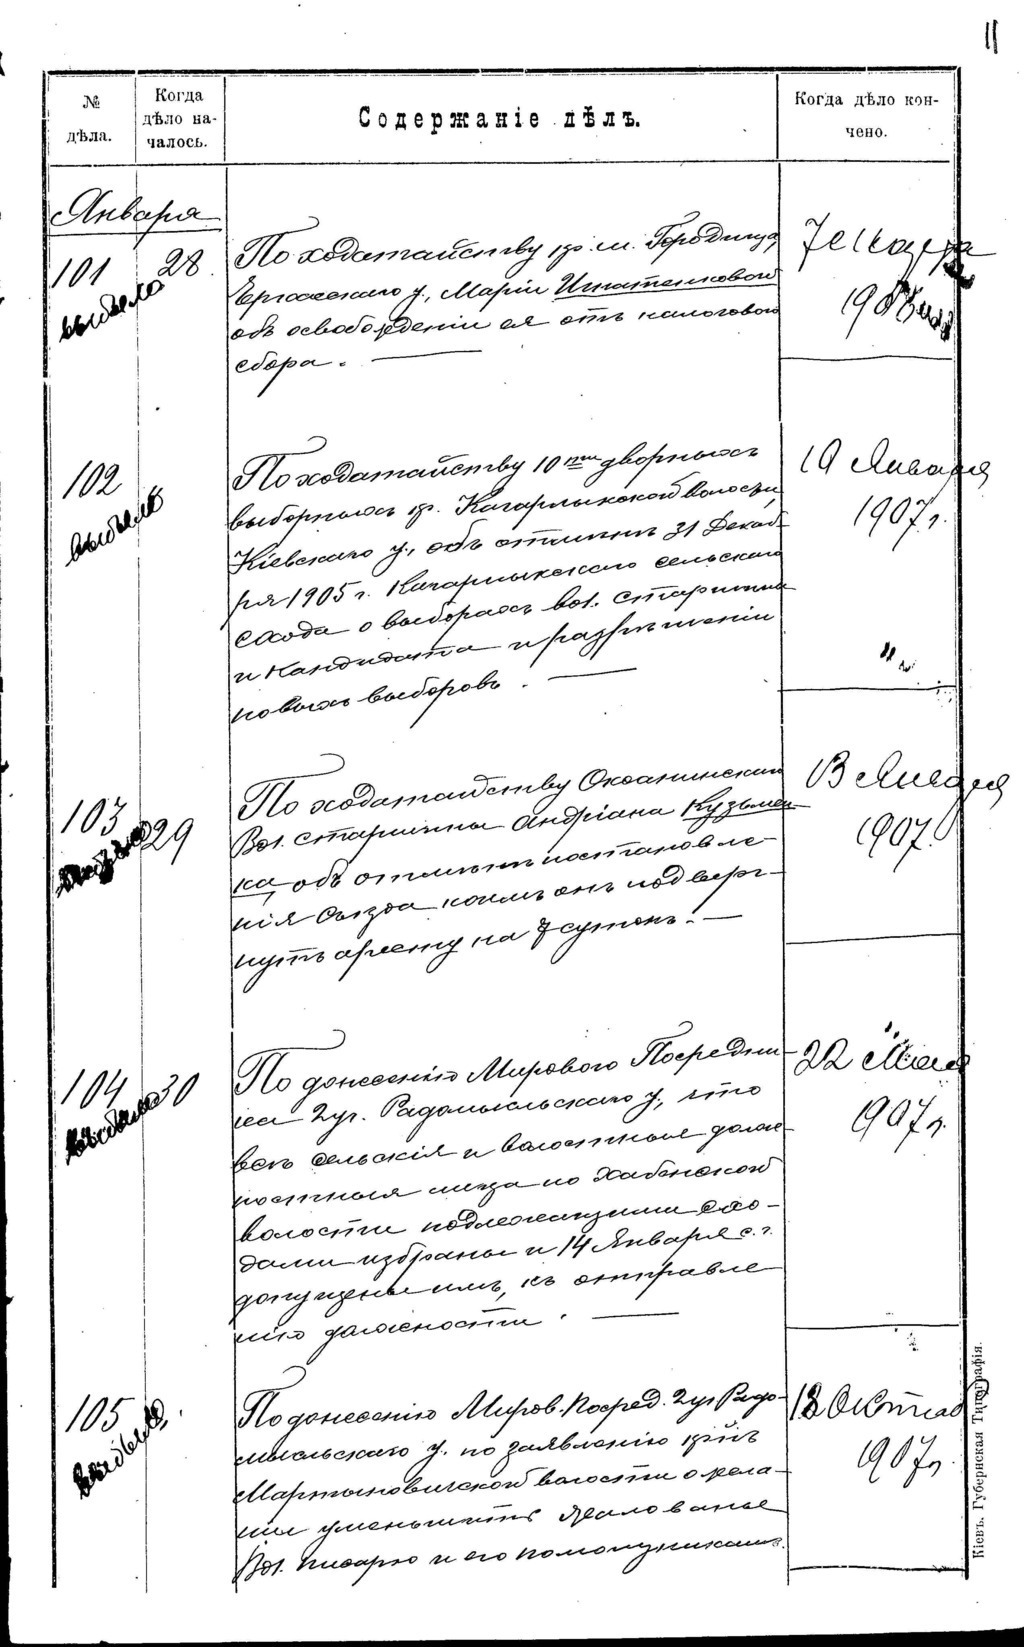 11
№ дѣла.
Когда дѣло началось.
Содержаніе дѣлъ.
Когда дѣло кончено.
Января
101
28
выбыло
По ходатайству кр. м. Городища,
у., Маріи Игнатенковой
объ освобожденіи ея отъ налогового
сбора.
190
102
выбыло
По ходатайству 10ти дворныхъ
выборныхъ кр. Кагарлыкской волости,
Кіевскаго у., объ отмѣнѣ 31 Декаб-
ря 1905 г. Кагарлыкскаго сельскаго
схода о выборахъ вол. старшины
и кандидата и разрѣшеніи
новыхъ выборовъ.
19 Января
1907 г.
103
29
По ходатайству
Вол. старшины Андріана Кузьмен-
ка, объ отмѣнѣ постановле-
нія Съѣзда коимъ онъ подверг-
нутъ аресту на 7 сутокъ.
13 Января
1907.
104
30
выбыло
По донесенію Мирового Посредни-
ка 2 уч. Радомысльскаго у., что
всѣ сельскія и волостныя долж-
ностныя лица по Хабенской
волости подлежащими схо-
дами избраны и 14 Января с.г.
допущены имъ, къ отправле-
нію должности.
22 Мая
1907 г.
105
выбыло
По донесенію Миров. Посред. 2 уч. Радо-
мысльскаго у. по заявленію кр-нъ
Мартыновичской волости о жела-
ніи уменьшить жалованье
Вол. писарю и его помощникамъ.
Октяб
1907 г.
Кіевъ. Губернская Типографія.